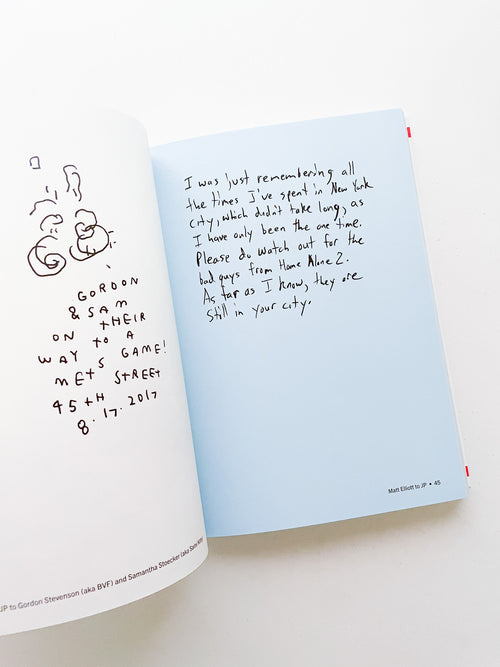 GORDON
& SAM
ON THEIR
WAY TO A
METS GAME!
45TH STREET
8.17.2017
JP to Gordon Stevenson (aka BVF) and Samantha Stoecker (aka
I was just remembering all
the times I've spent in New York
City, which didn't take long, as
I have only been the one time.
Please do watch out for the
bad guys from Home Alone 2.
As far as I know, they are
still in your city.
Matt Elliott to JP • 45